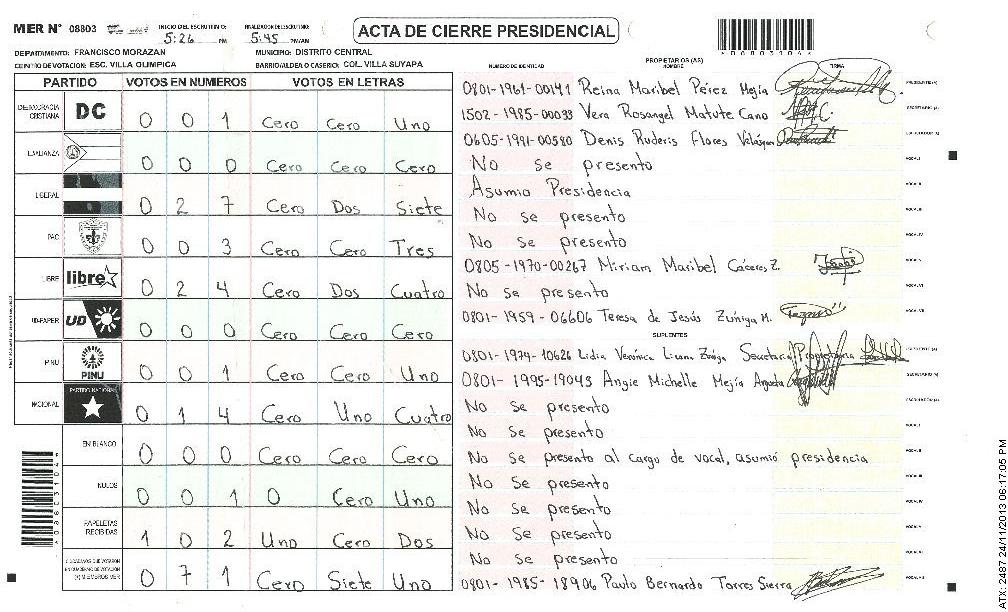 MER N° 08803 INICIO DEL ESCRUTINIO: 5:26 PM FINALIZACION DEL ESCRUTINIO: 5:45 PM/AM
ACTA DE CIERRE PRESIDENCIAL
*00003104*
DEPARTAMENTO: FRANCISCO MORAZAN MUNICIPIO: DISTRITO CENTRAL
CENTRO DE VOTACION: ESC. VILLA OLIMPICA BARRIO/ALDEA O CASERIO: COL. VILLA SUYAPA
PARTIDO VOTOS EN NUMEROS VOTOS EN LETRAS
DEMOCRACIA CRISTIANA DC 0 0 1 Cero Cero Uno
0 0 0 Cero Cero Cero
LIBERAL 0 2 7 Cero Dos Siete
PAC 0 0 3 Cero Cero Tres
LIBRE libre 0 2 4 Cero Dos Cuatro
UD-FAPER UD 0 0 0 Cero Cero Cero
PINU PINU 0 0 1 Cero Cero Uno
NACIONAL PARTIDO NACIONAL 0 1 4 Cero Uno Cuatro
EN BLANCO 0 0 0 Cero Cero Cero
NULOS 0 0 1 0 Cero Uno
PAPELETAS RECIBIDAS 1 0 2 Uno Cero Dos
CIUDADANOS QUE VOTARON EN CUADERNO DE VOTACION (Y) MIEMBROS MER 0 7 1 Cero Siete Uno
NUMERO DE IDENTIDAD PROPIETARIOS (AS) FIRMA
0801-1961-00141 Reina Maribel Pérez Mejía PRESIDENTE(A)
1502-1985-00033 Vera Rosangel Matute Cano SECRETARIO (A)
0605-1991-00580 Denis Ruderis Flores Velásquez ESCRUTADOR (A)
No se presento VOCAL I
Asumio Presidencia VOCAL II
No se presento VOCAL III
No se presento VOCAL IV
0805-1970-00267 Miriam Maribel Cáceres Z. VOCAL V
No se presento VOCAL VI
0801-1959-06606 Teresa de Jesús Zúniga M. VOCAL VII
SUPLENTES
0801-1974-10626 Lidia Verónica Zúniga Secretaria Propietaria
0801-1995-19043 Angie Michelle Mejía Argueta SECRETARIO (A)
No se presento ESCRUTADOR (A)
No se presento VOCAL I
No se presento al cargo de vocal, asumió presidencia VOCAL II
No se presento
No se presento
No se presento
No se presento
0801-1985-18906 Paulo Bernardo Torres Sierra
ATX-2487 24/11/2013 06:17:05 PM